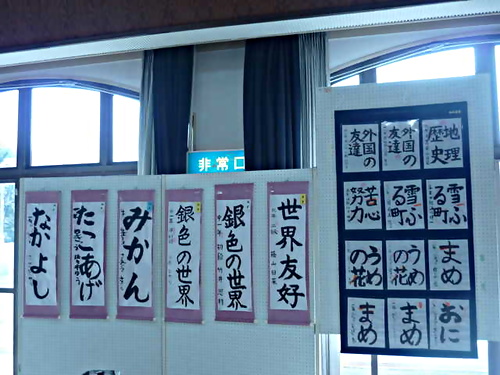 非常口
世界友好
銀色の世界
銀色の世界
みかん
たこあげ
なかよし
地理
歴史
外国の
友達
外国の
友達
雪ふ
る町
雪ふ
る町
苦心
努力
まめ
うめ
の花
うめ
の花
おに
まめ
まめ